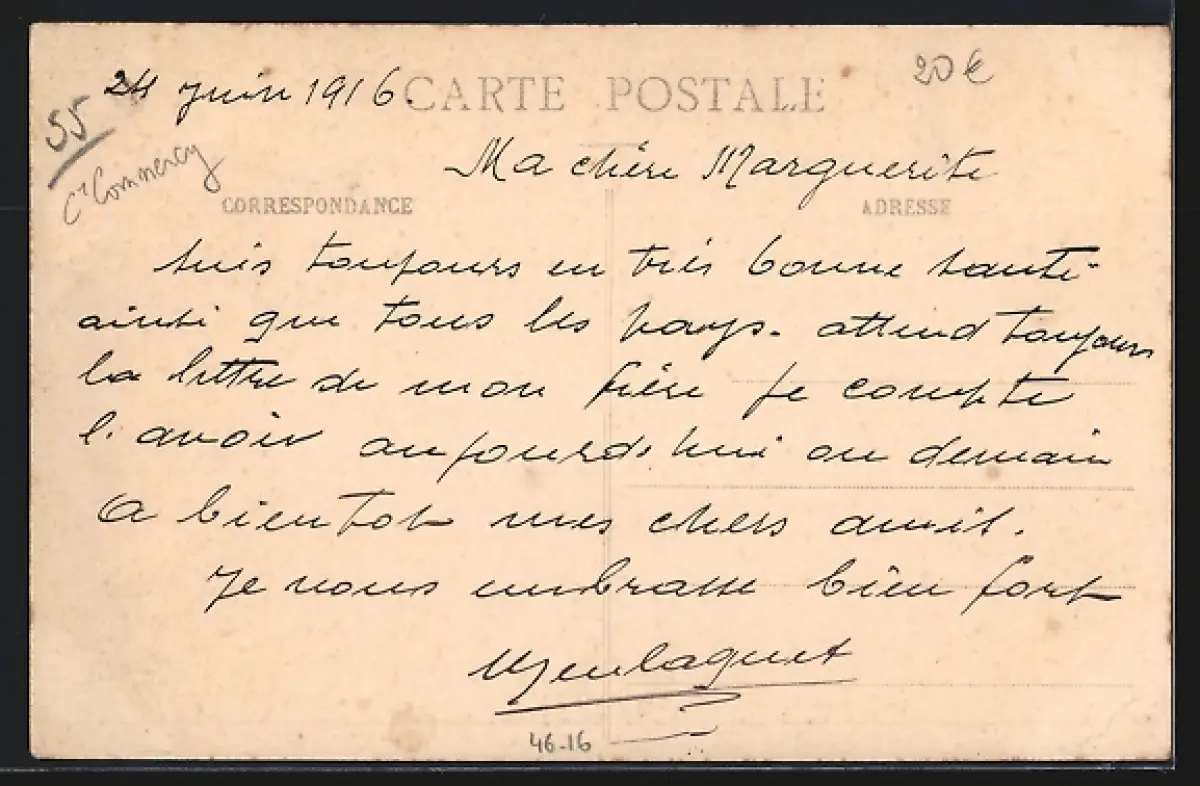 24 juin 1916.
CARTE POSTALE
20 €
55
Ct Commercy
Ma chère Marguerite
CORRESPONDANCE
ADRESSE
Suis toujours en très bonne santé
ainsi que tous les pays. attend toujours
la lettre de mon frère je compte
l'avoir aujourd'hui ou demain
A bientot mes chers amis.
Je vous embrasse bien fort
46-16